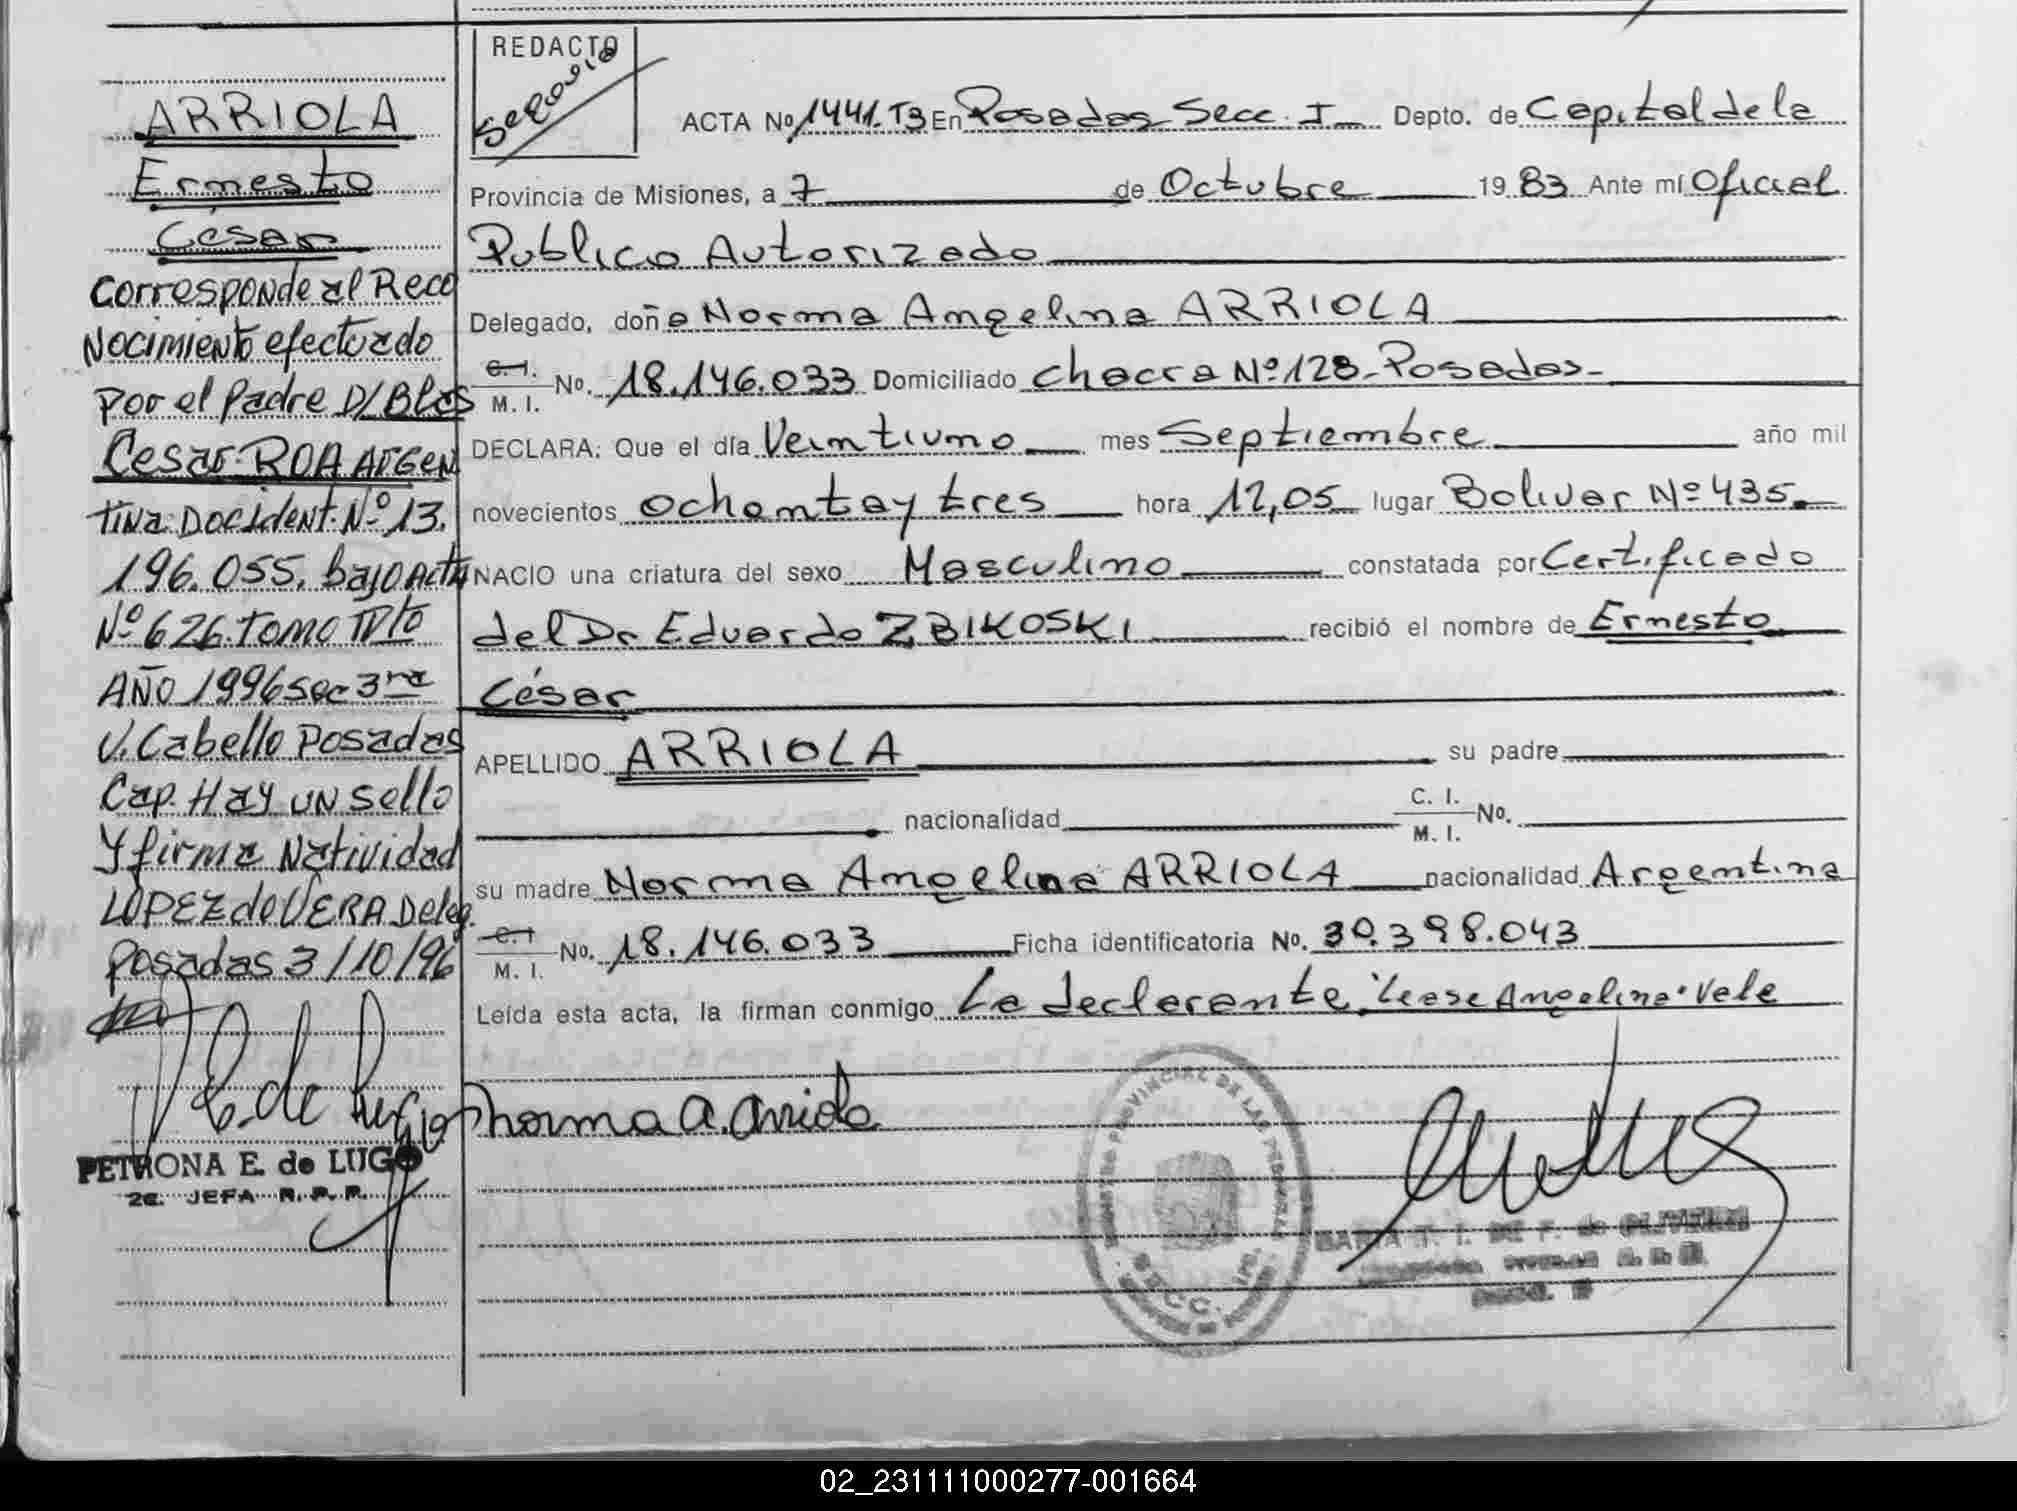 ARRIOLA
Ernesto
César
Corresponde al Reco
Nocimiento efectuado
Por el Padre D/Blas
Cesar ROA Argen
tina Doc ident. Nº 13.
196.055. bajo Acta
Nº 626. tomo
AÑO 1996 sec 3ra
V. Cabello Posadas
Cap. Hay un sello
y firma Natividad
LOPEZ de VERA Deleg.
Posadas 3/10/96
PETRONA E. de LUGO
2a. JEFA R.P.P.
REDACTO
Segovia
ACTA Nº 1441. T3 En Posadas Secc. I Depto. de Capital de la
Provincia de Misiones, a 7 de Octubre 19 83 Ante mí Oficial
Publico Autorizado
Delegado, doña Norma Angelina ARRIOLA
C. I. M. I. No. 18.146.033 Domiciliado chacra Nº 128-Posadas-
DECLARA: Que el día Veintiuno mes Septiembre año mil
novecientos ochentay tres hora 12,05 lugar Bolivar Nº 435.
NACIO una criatura del sexo Masculino constatada por Certificado
del Dr Eduardo ZBIKOSKI recibió el nombre de Ernesto
César
APELLIDO ARRIOLA su padre
nacionalidad C. I. M. I. No.
su madre Norma Angelina ARRIOLA nacionalidad Argentina
C. I M. I. No. 18.146.033 Ficha identificatoria No. 30.398.043
Leída esta acta, la firman conmigo La declarante "Lease Angelina" Vale
Norma A. Arriola
REGISTRO PROVINCIAL DE LAS PERSONAS
SECC.
02_231111000277-001664